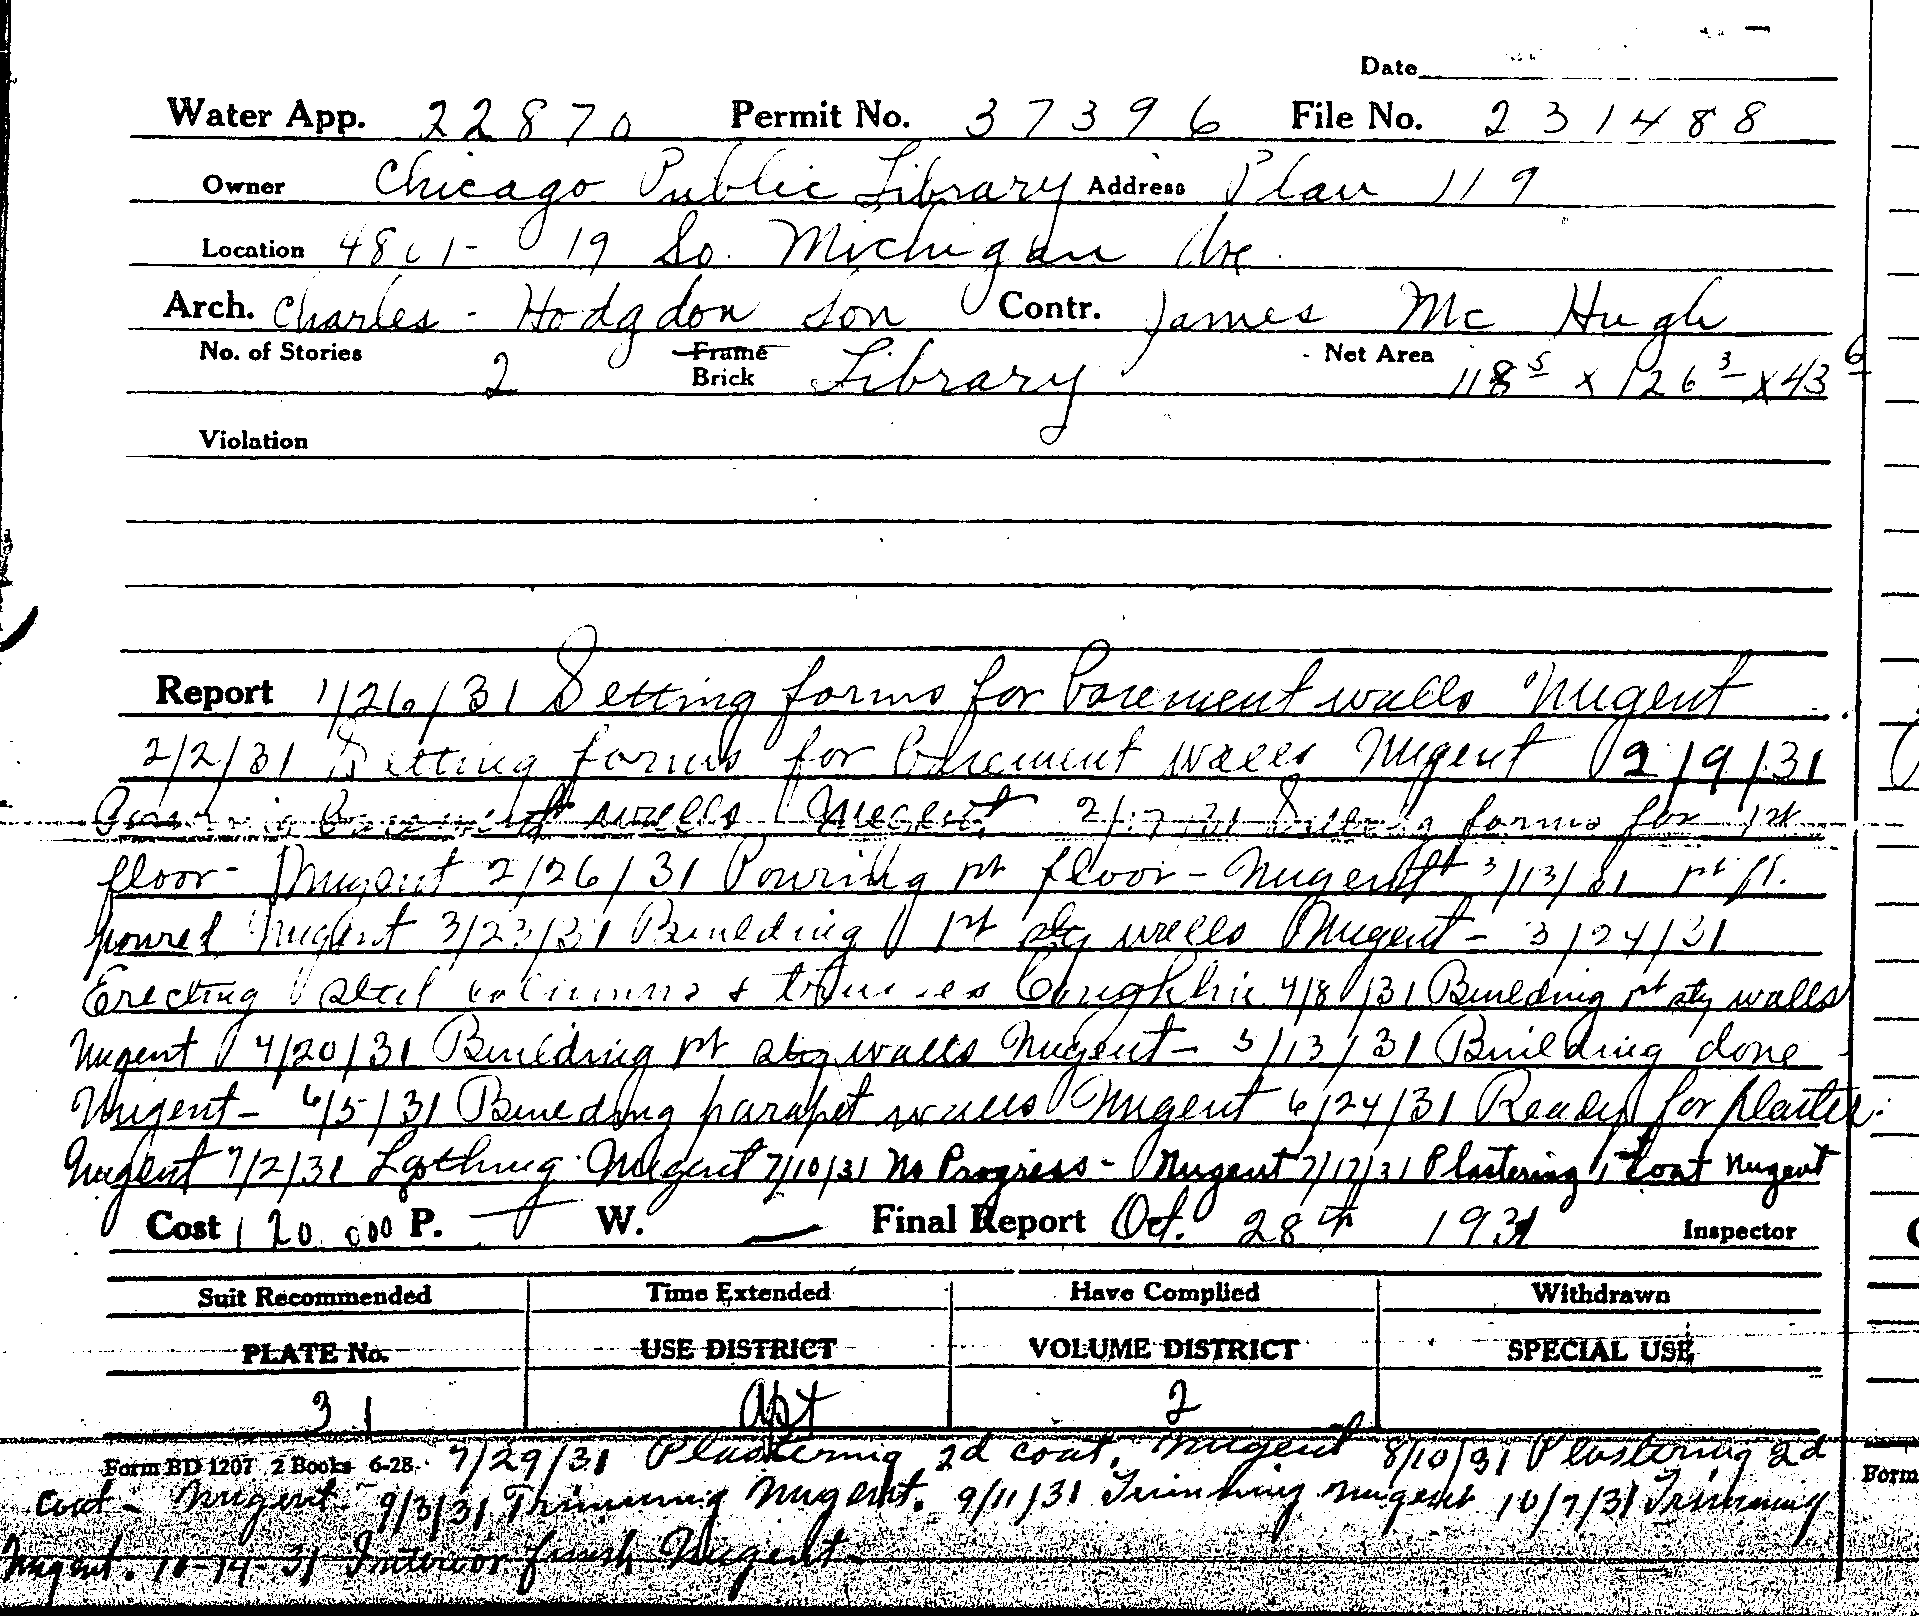 Date
Water App. 22870 Permit No. 37396 File No. 231488
Owner Chicago Public Library Address Plan 119
Location 4801-19 So. Michigan Ave.
Arch. Charles - Hodgdon Son Contr. James Mc Hugh
No. of Stories 2 Frame Brick Library Net Area 118 5 x 126 3 x 43 6
Violation
Report 1/26/31 Setting forms for basement walls Nugent
2/2/31 Setting forms for basement walls Nugent 2/9/31
basement walls Nugent 2/17/31 Setting forms for 1st
floor - Nugent 2/26/31 Pouring 1st floor - Nugent 3/13/31 1st fl.
poured Nugent 3/23/31 Building 1st sty walls Nugent - 3/24/31
Erecting steel columns & trusses Coughlin 4/8/31 Building 1st sty walls
Nugent 4/20/31 Building 1st sty walls Nugent - 5/13/31 Building done
Nugent - 6/5/31 Building parapet walls Nugent 6/24/31 Ready for plaster
Nugent 7/2/31 Lathing Nugent 7/10/31 No Progress - Nugent 7/17/31 Plastering 1st coat Nugent
Cost 120 000 P. — W. — Final Report Oct. 28th 1931 Inspector
Suit Recommended Time Extended Have Complied Withdrawn
PLATE No. USE DISTRICT VOLUME DISTRICT SPECIAL USE
31 Apt 2
Form BD 1207 2 Books 6-28 7/29/31 Plastering 2d coat. Nugent 8/10/31 Plastering 2d
coat - Nugent - 9/3/31 Trimming Nugent. 9/11/31 Trimming Nugent 10/7/31 Trimming
Nugent. 10-14-31 Interior finish Nugent -
Form